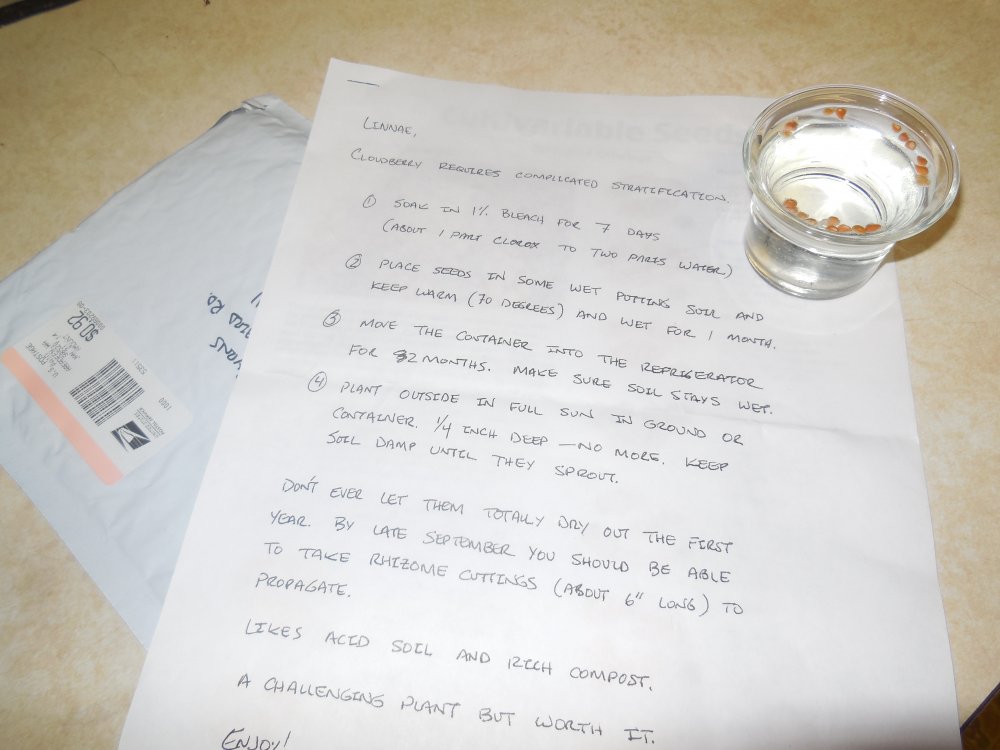 LINNAE,
CLOUDBERRY REQUIRES COMPLICATED STRATIFICATION.
① SOAK IN 1% BLEACH FOR 7 DAYS
(ABOUT 1 PART CLOROX TO TWO PARTS WATER)
② PLACE SEEDS IN SOME WET POTTING SOIL AND
KEEP WARM (70 DEGREES) AND WET FOR 1 MONTH.
③ MOVE THE CONTAINER INTO THE REFRIGERATOR
FOR 2 MONTHS. MAKE SURE SOIL STAYS WET.
④ PLANT OUTSIDE IN FULL SUN IN GROUND OR
CONTAINER. 1/4 INCH DEEP — NO MORE. KEEP
SOIL DAMP UNTIL THEY SPROUT.
DON'T EVER LET THEM TOTALLY DRY OUT THE FIRST
YEAR. BY LATE SEPTEMBER YOU SHOULD BE ABLE
TO TAKE RHIZOME CUTTINGS (ABOUT 6" LONG) TO
PROPAGATE.
LIKES ACID SOIL AND RICH COMPOST.
A CHALLENGING PLANT BUT WORTH IT.
ENJOY!
$0.92
1000
RD.